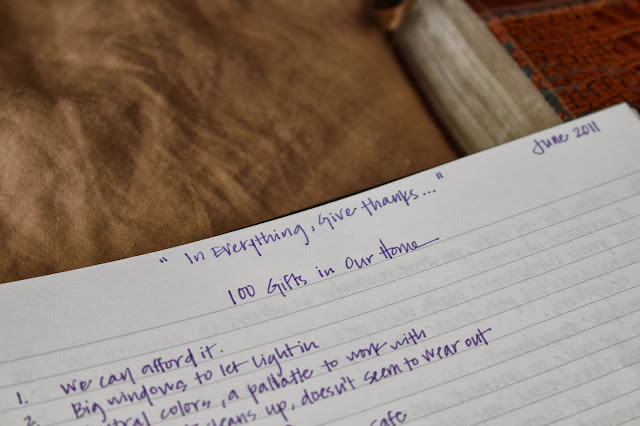 June 2011
"In Everything, Give thanks..."
100 Gifts in Our Home
1. We can afford it.
2. Big windows to let light in
colors, a pallatte to work with
cleans up, doesn't seem to wear out
safe